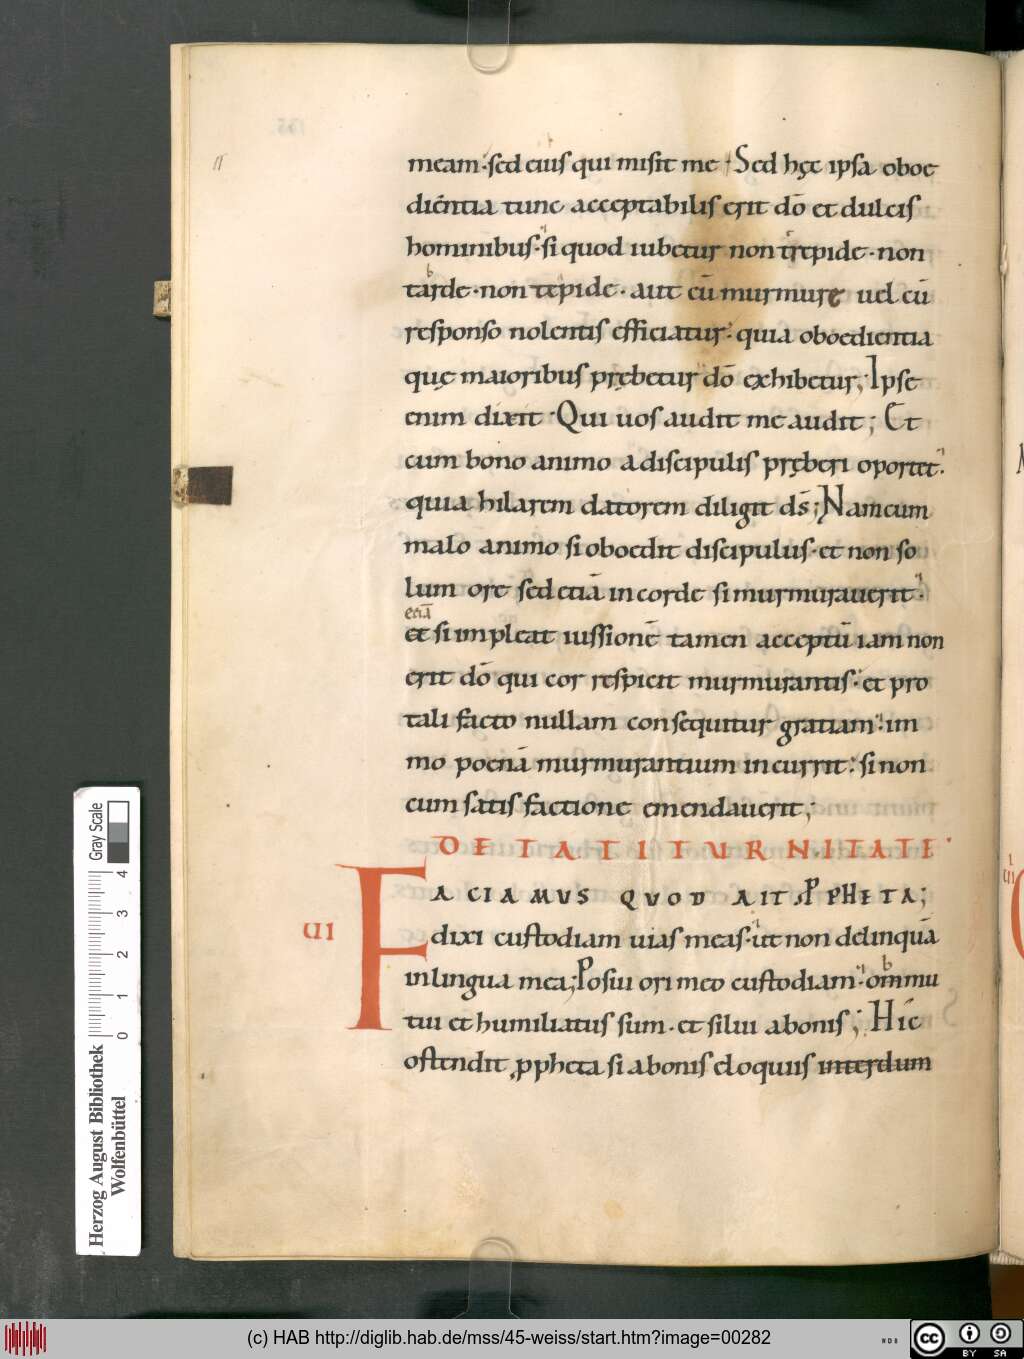 meam· sed eius qui misit me· Sed hęc ipsa oboe
dientia tunc acceptabilis erit dō et dulcis
hominibus· si quod iubetur non trepide· non
tarde· non tepide· aut cū murmure uel cū
responso nolentis efficiatur· quia oboedientia
quę maioribus prębetur dō exhibetur; Ipse
enim dixit· Qui uos audit me audit; Et
cum bono animo a discipulis pręberi oportet·
quia hilarem datorem diligit ds̄; Nam cum
malo animo si oboedit discipulus· et non so
lum ore sed etiā in corde si murmurauerit·
etiā
et si impleat iussionē tamen acceptū iam non
erit dō qui cor respicit murmurantis· et pro
tali facto nullam consequitur gratiam· im
mo poenā murmurantium incurrit: si non
cum satisfactione emendauerit;
DE TATITURNITATE
UI
FACIAMUS QUOD AIT PPHETA;
dixi custodiam uias meas· ut non delinquā
in lingua mea; Posui ori meo custodiam· ommu
tui et humiliatus sum· et silui a bonis; Hic
ostendit ppheta si a bonis eloquiis interdum
Gray Scale
4
3
2
1
0
Herzog August Bibliothek
Wolfenbüttel
(c) HAB http://diglib.hab.de/mss/45-weiss/start.htm?image=00282
cc BY SA